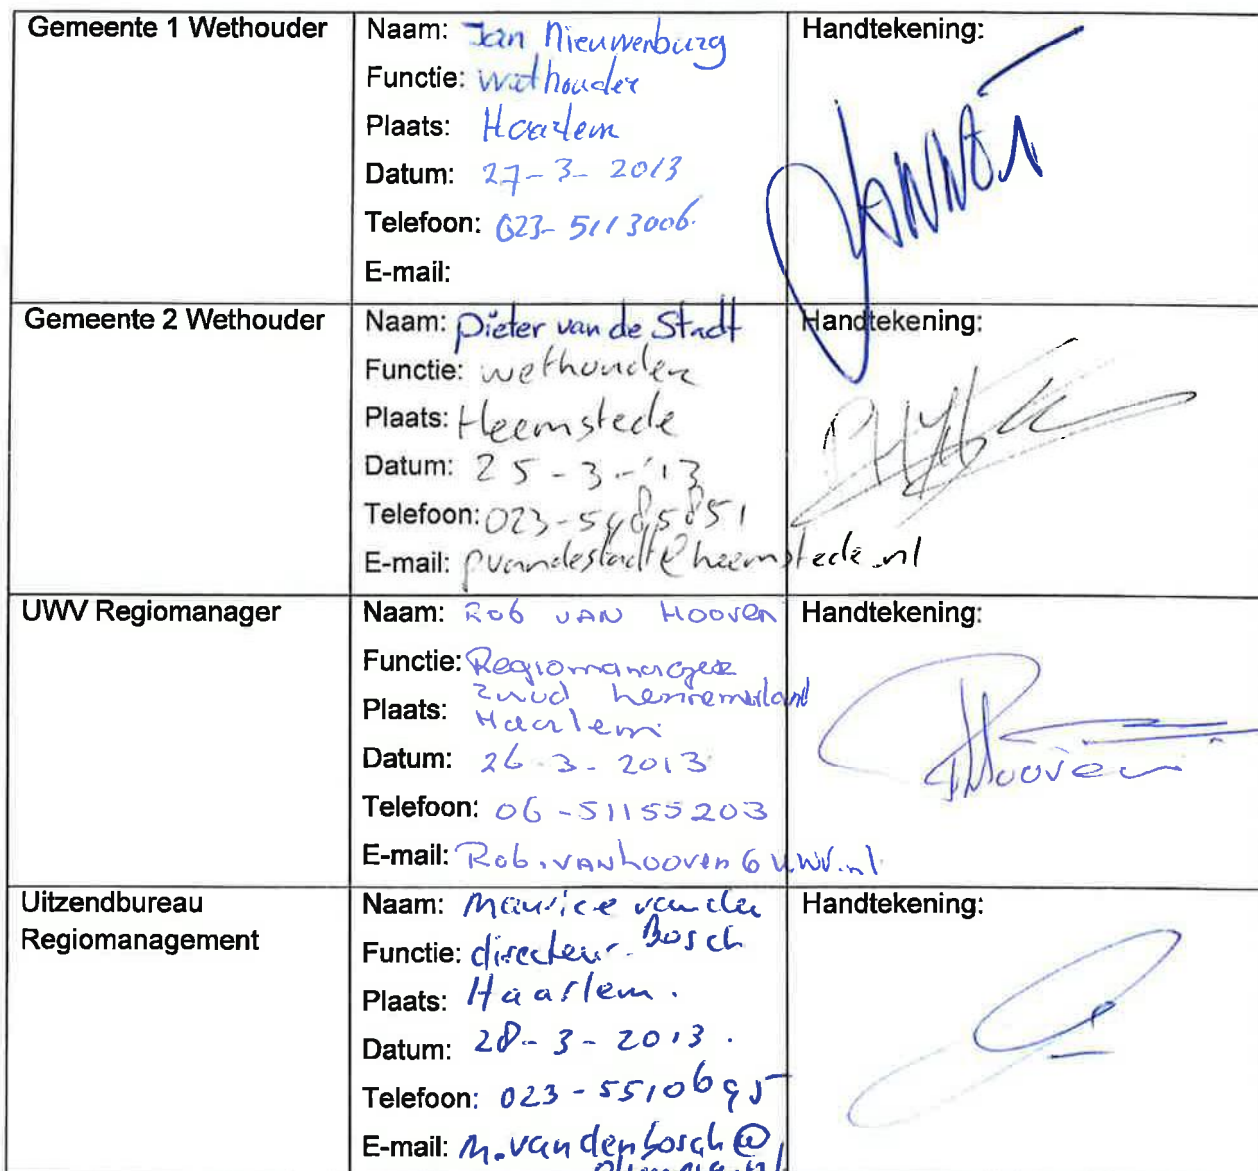 Gemeente 1 Wethouder
Naam: Jan Nieuwenburg
Functie: wethouder
Plaats: Haarlem
Datum: 27-3-2013
Telefoon: 023-5113006.
E-mail:
Handtekening:
Gemeente 2 Wethouder
Naam: Pieter van de Stadt
Functie: wethouder
Plaats: Heemstede
Datum: 25-3-'13
Telefoon: 023-5485851
E-mail: pvandestadt@heemstede.nl
Handtekening:
UWV Regiomanager
Naam: Rob van Hooven
Functie: Regiomanager
Zuid Kennemerland
Plaats: Haarlem
Datum: 26-3-2013
Telefoon: 06-51155203
E-mail: Rob.vanhooven@uwv.nl
Handtekening:
Uitzendbureau
Regiomanagement
Naam: Maurice van den
Bosch
Functie: directeur.
Plaats: Haarlem.
Datum: 28-3-2013.
Telefoon: 023-5510695
E-mail: M.vandenbosch@
olympia.nl
Handtekening: